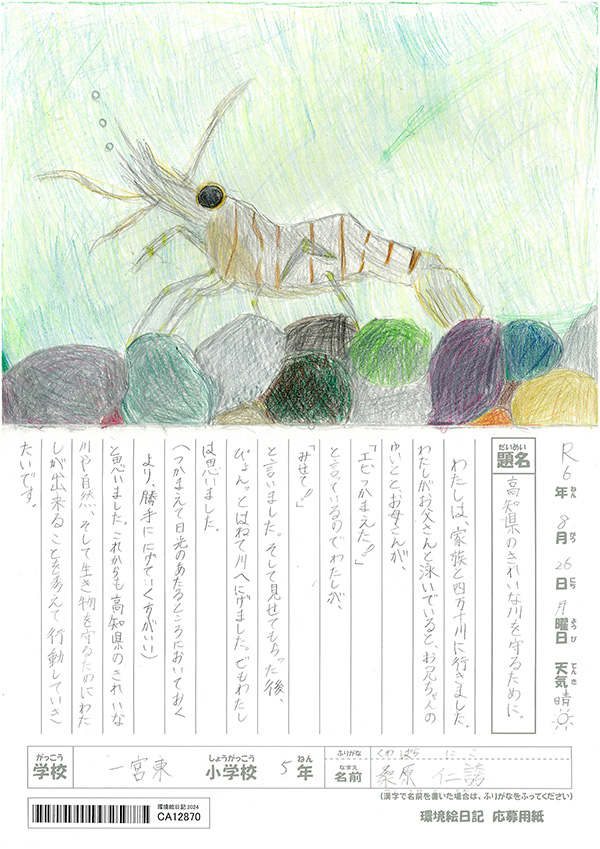 R6年ねん 8月がつ 26日にち 月曜日ようび 天気てんき 晴
題名だいめい 高知県のきれいな川を守るために。
わたしは、家族と四万十川に行きました。
わたしがお父さんと泳いでいると、お兄ちゃんの
ゆいとと、お母さんが、
「エビつかまえた!!」
と言っているのでわたしが、
「みせて!!」
と言いました。そして見せてもらった後、
ぴょん。とはねて川へにげました。でもわたし
は思いました。
(つかまえて日光のあたるところにおいておく
より、勝手ににげていく方がいい)
と思いました。これからも高知県のきれいな
川や自然、そして生き物を守るためにわた
しが出来ることを考えて行動していき
たいです。
学校がっこう 一宮東 小学校しょうがっこう 5年ねん
ふりがな くわばら にこ
名前なまえ 桑原 仁
(漢字で名前を書いた場合は、ふりがなをふってください)
環境絵日記2024
CA12870
環境絵日記 応募用紙